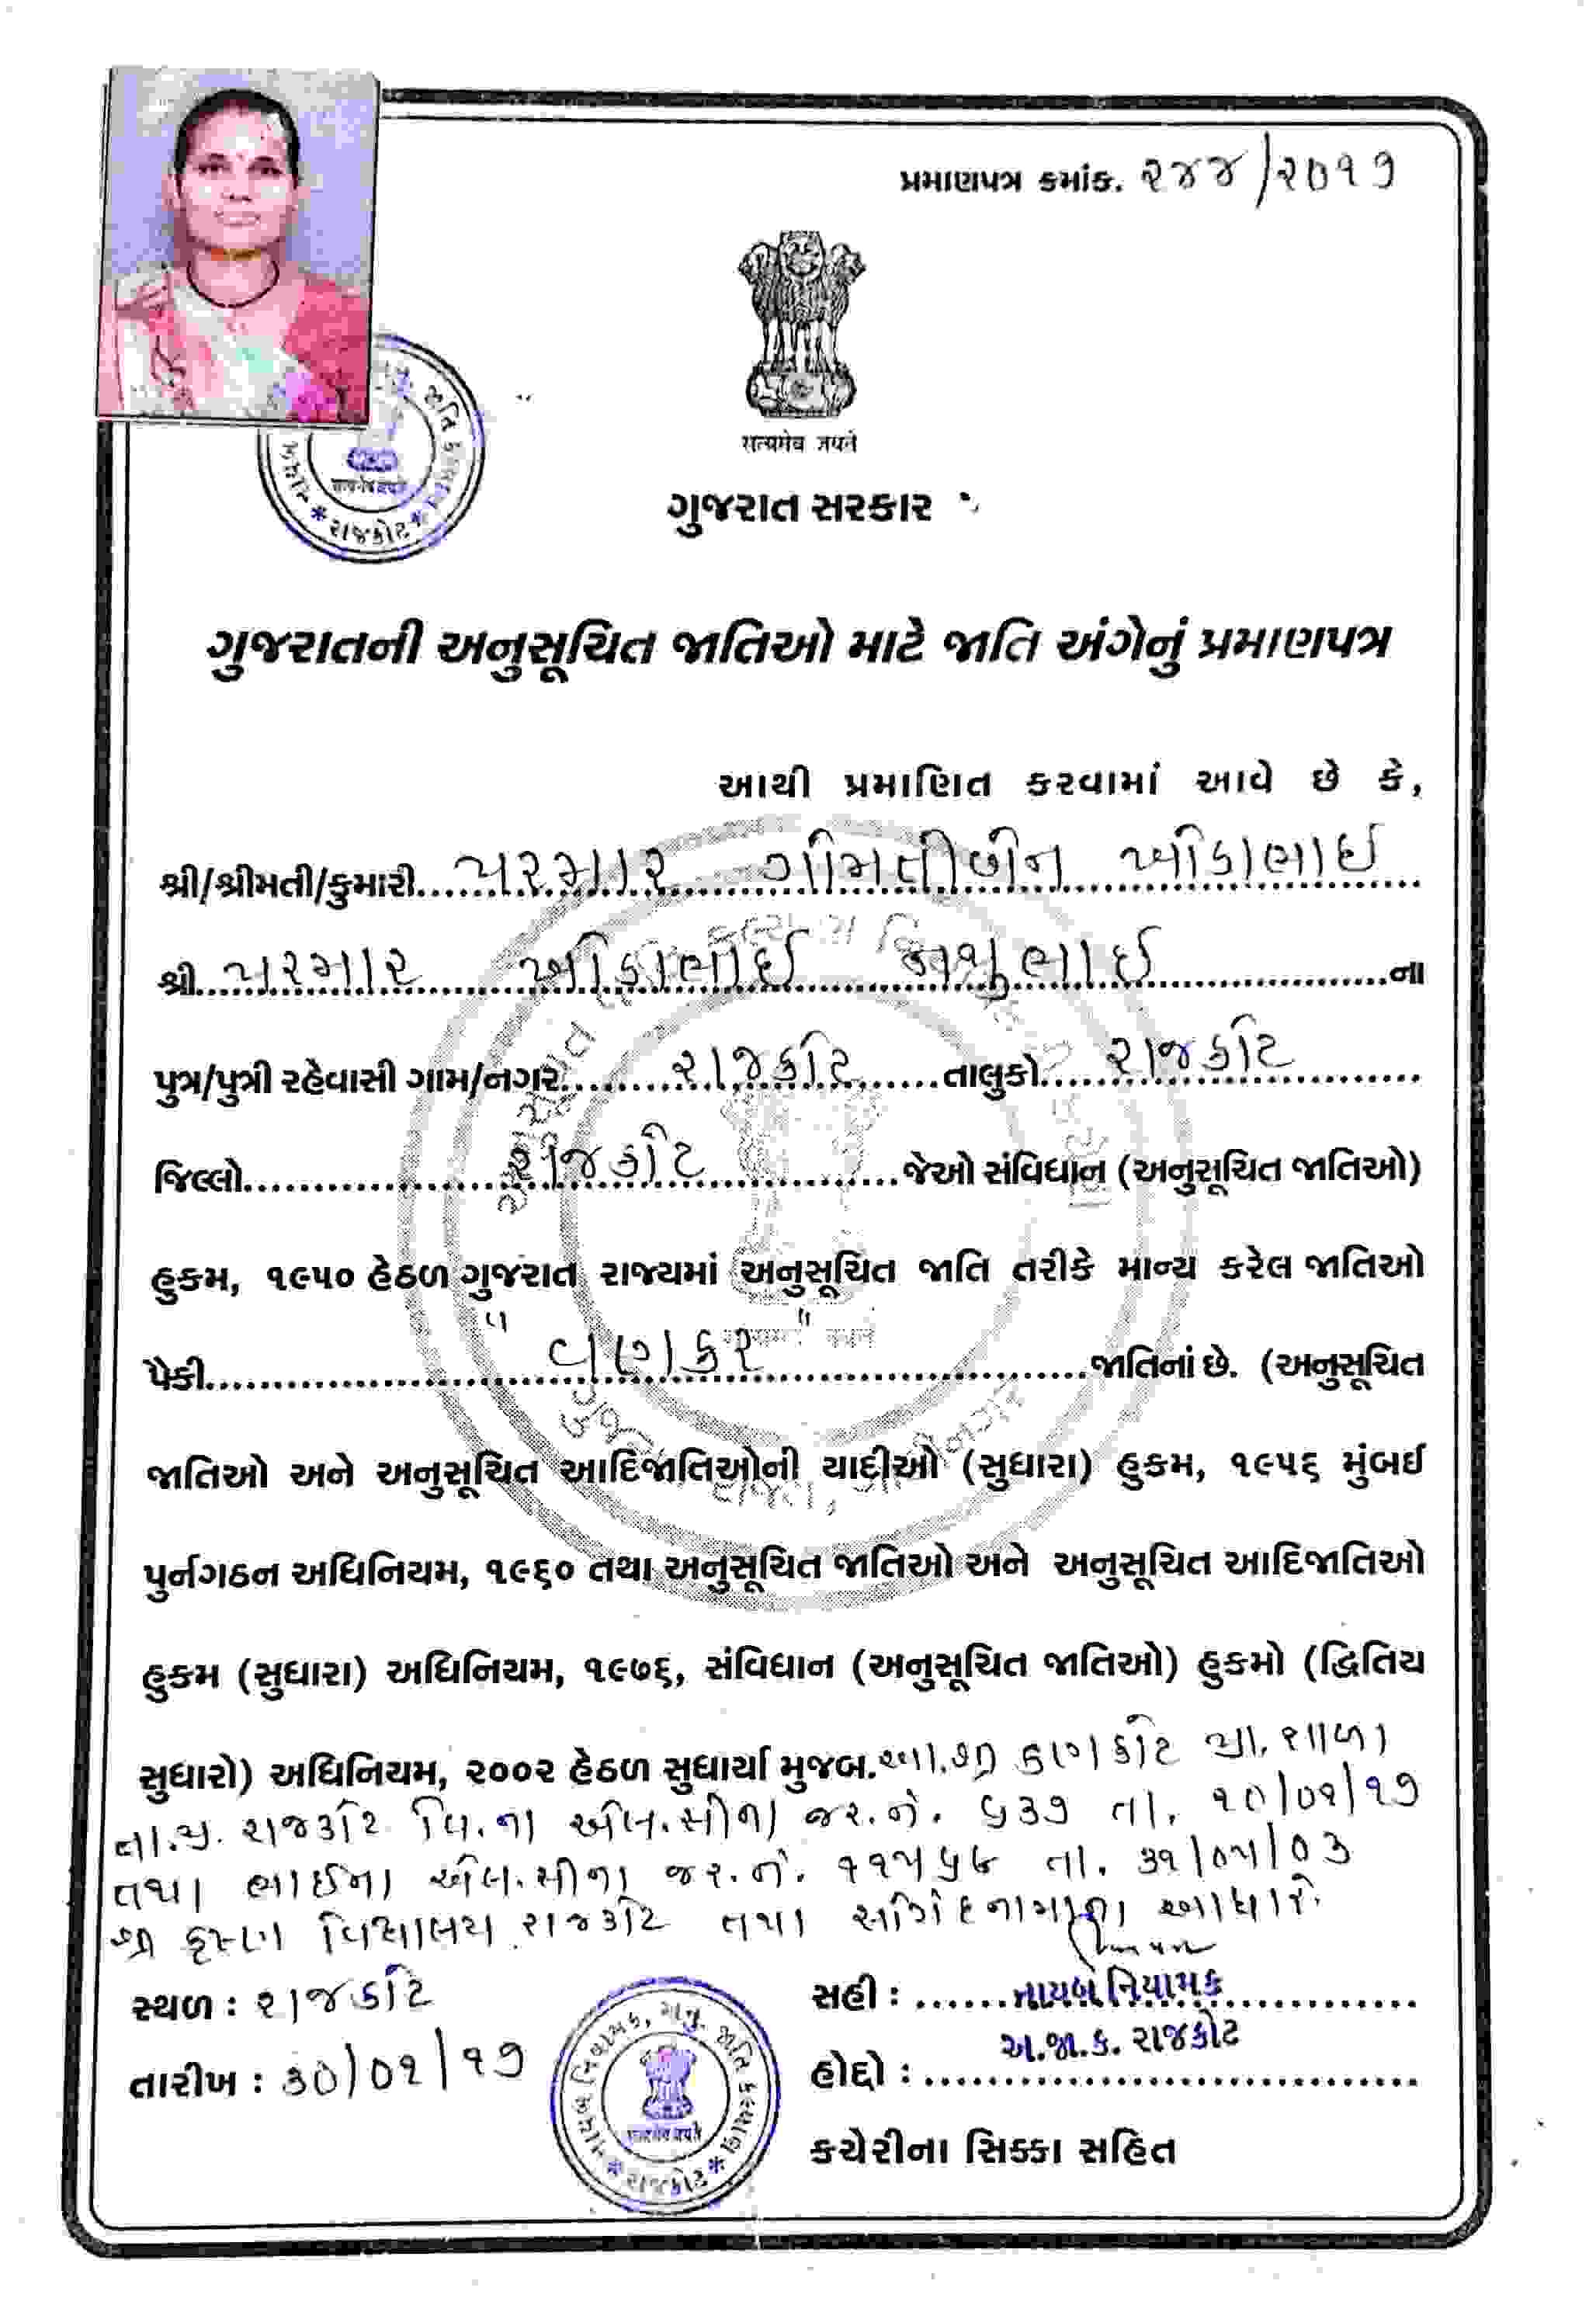 પ્રમાણપત્ર કમાંક. ૨૪૪/૨૦૧૭
सत्यमेव जयते
ગુજરાત સરકાર
જાતિ કલ્યાણ
* રાજકોટ *
ગુજરાતની અનુસૂચિત જાતિઓ માટે જાતિ અંગેનું પ્રમાણપત્ર
આથી પ્રમાણિત કરવામાં આવે છે કે,
શ્રી/શ્રીમતી/કુમારી પરમાર ગોમતીબેન ખોડાભાઈ
શ્રી પરમાર ખોડાભાઈ ભાઈ ના
પુત્ર/પુત્રી રહેવાસી ગામ/નગર રાજકોટ તાલુકો રાજકોટ
જિલ્લો રાજકોટ જેઓ સંવિધાન (અનુસૂચિત જાતિઓ)
હુકમ, ૧૯૫૦ હેઠળ ગુજરાત રાજ્યમાં અનુસૂચિત જાતિ તરીકે માન્ય કરેલ જાતિઓ
પૈકી "વણકર" જાતિનાં છે. (અનુસૂચિત
જાતિઓ અને અનુસૂચિત આદિજાતિઓની યાદીઓ (સુધારા) હુકમ, ૧૯૫૬ મુંબઈ
પુર્નગઠન અધિનિયમ, ૧૯૬૦ તથા અનુસૂચિત જાતિઓ અને અનુસૂચિત આદિજાતિઓ
હુકમ (સુધારા) અધિનિયમ, ૧૯૭૬, સંવિધાન (અનુસૂચિત જાતિઓ) હુકમો (દ્વિતિય
સુધારો) અધિનિયમ, ૨૦૦૨ હેઠળ સુધાર્યા મુજબ. શ્રી કણકોટ પ્રા. શાળા
તા.જી. રાજકોટ વિ.ના એલ.સીના જર.નં. ૬૩૭ તા. ૧૦/૦૧/૧૭
તથા ભાઈના એલ.સીના જર.નં. તા. ૩૧/૦૫/૦૩
શ્રી કૃષ્ણ વિદ્યાલય રાજકોટ તથા સોગંદનામાના આધારે.
સ્થળ : રાજકોટ
સહી : નાયબ નિયામક
અ.જા.ક. રાજકોટ
તારીખ : ૩૦/૦૧/૧૭
હોદ્દો :
નાયબ નિયામક, અનુ. જાતિ કલ્યાણ
सत्यमेव जयते
* રાજકોટ *
કચેરીના સિક્કા સહિત